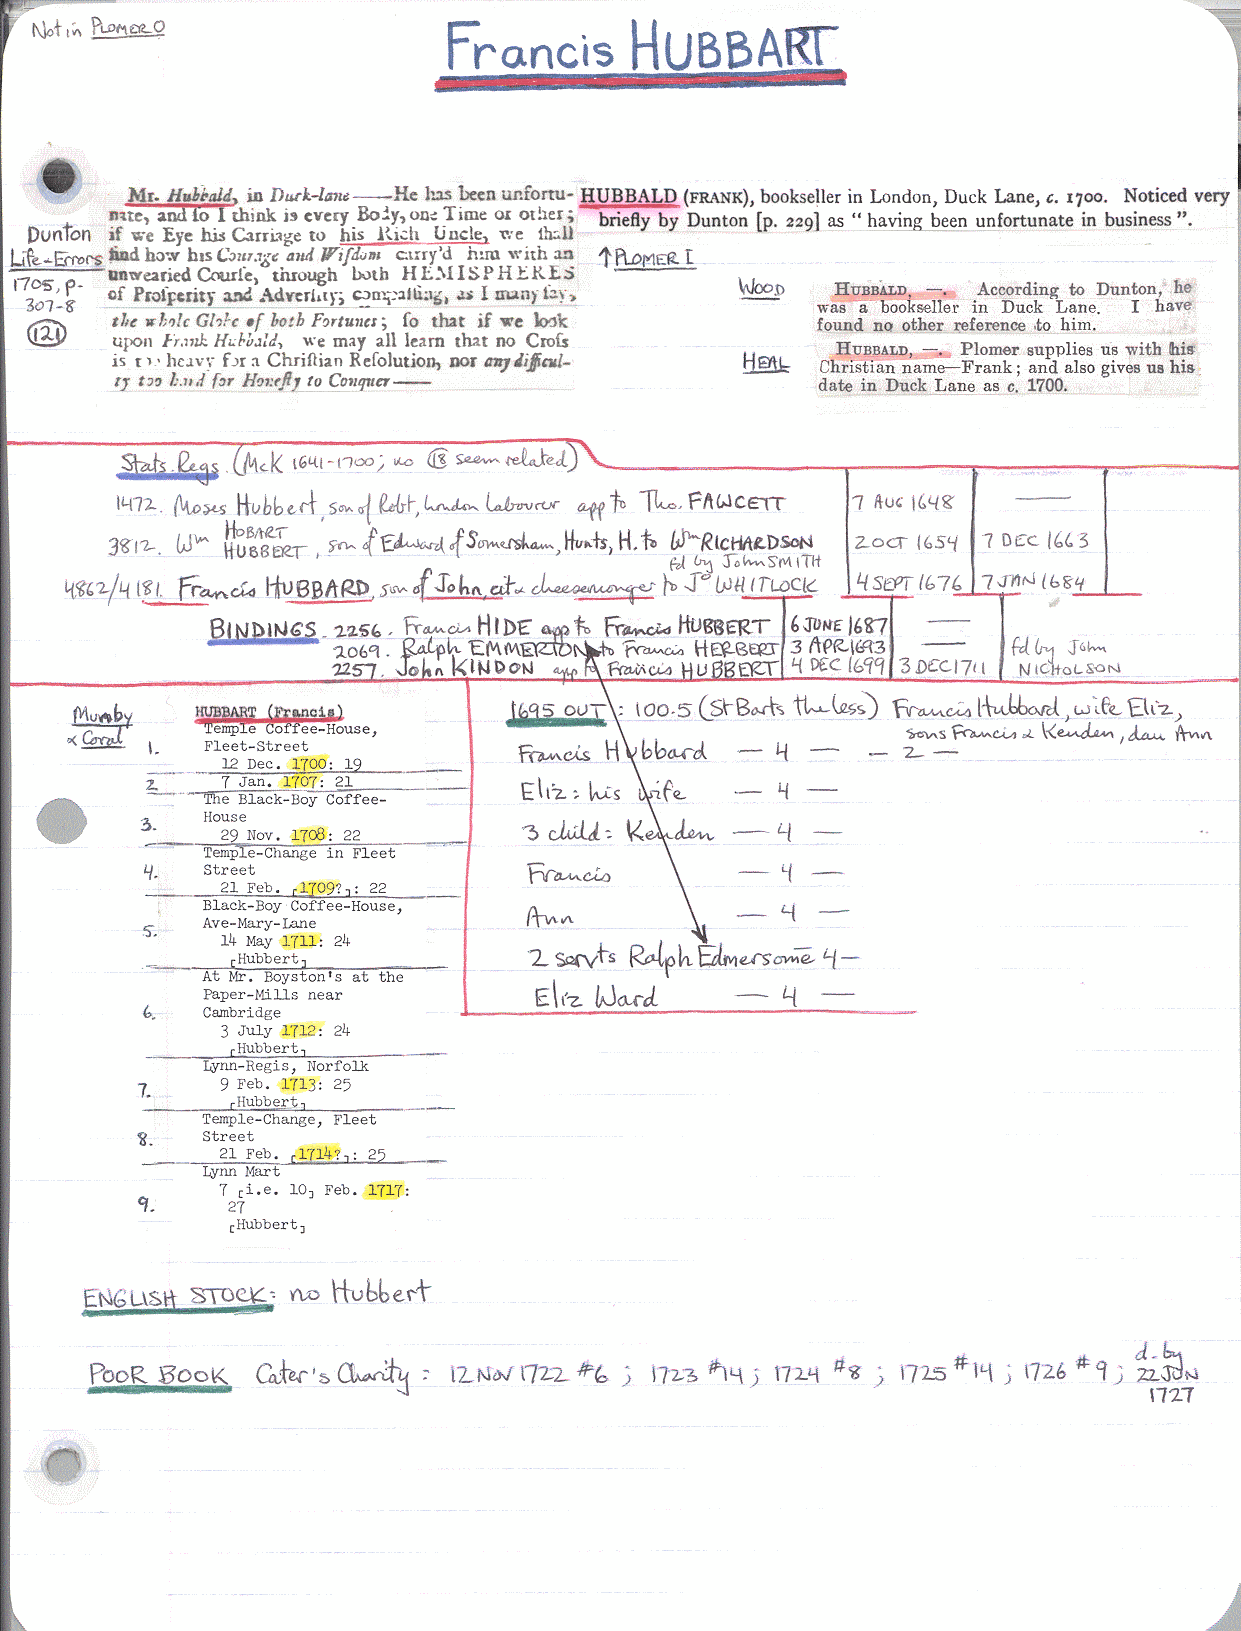 Not in PLOMER O
Francis HUBBART
Mr. Hubbald, in Duck-lane——He has been unfortu-
nate, and so I think is every Body, one Time or other;
if we Eye his Carriage to his Rich Uncle, we shall
find how his Courage and Wisdom carry'd him with an
unwearied Course, through both HEMISPHERES
of Prosperity and Adversity; compassing, as I may say,
the whole Globe of both Fortunes; so that if we look
upon Frank Hubbald, we may all learn that no Cross
is too heavy for a Christian Resolution, nor any difficul-
ty too hard for Honesty to Conquer——
Dunton
Life-Errors
1705, p-
307-8
(121)
HUBBALD (FRANK), bookseller in London, Duck Lane, c. 1700. Noticed very
briefly by Dunton [p. 229] as "having been unfortunate in business".
↑ PLOMER I
WOOD
HUBBALD, —. According to Dunton, he
was a bookseller in Duck Lane. I have
found no other reference to him.
HEAL
HUBBALD, —. Plomer supplies us with his
Christian name—Frank; and also gives us his
date in Duck Lane as c. 1700.
Stats. Regs. (McK 1641-1700; no 18 seem related)
1472. Moses Hubbert, son of Robt, London Labourer app to Tho. FAWCETT 7 AUG 1648 ——
3812. Wm HOBART
HUBBERT, son of Edward of Somersham, Hunts, H. to Wm RICHARDSON 2 OCT 1654 7 DEC 1663
fd by John SMITH
4862/4181. Francis HUBBARD, son of John, cit & cheesemonger to Jo WHITLOCK 4 SEPT 1676 7 JAN 1684
BINDINGS. 2256. Francis HIDE app to Francis HUBBERT 6 JUNE 1687 ——
2069. Ralph EMMERTON to Francis HERBERT 3 APR 1693 ——
2257. John KINDON app to Francis HUBBERT 4 DEC 1699 3 DEC 1711 fd by John
NICHOLSON
Mumby
& Coral
HUBBART (Francis)
1. Temple Coffee-House,
Fleet-Street
12 Dec. 1700: 19
2 7 Jan. 1707: 21
3. The Black-Boy Coffee-
House
29 Nov. 1708: 22
4. Temple-Change in Fleet
Street
21 Feb. [1709?]: 22
5. Black-Boy Coffee-House,
Ave-Mary-Lane
14 May 1711: 24
[Hubbert]
6. At Mr. Boyston's at the
Paper-Mills near
Cambridge
3 July 1712: 24
[Hubbert]
7. Lynn-Regis, Norfolk
9 Feb. 1713: 25
[Hubbert]
8. Temple-Change, Fleet
Street
21 Feb. [1714?]: 25
9. Lynn Mart
7 [i.e. 10] Feb. 1717:
27
[Hubbert]
1695 OUT: 100.5 (St Barts the less) Francis Hubbard, wife Eliz,
sons Francis & Kenden, dau Ann
Francis Hubbard — 4 — — 2 —
Eliz: his wife — 4 —
3 child: Kenden — 4 —
Francis — 4 —
Ann — 4 —
2 servts Ralph Edmersome 4 —
Eliz Ward — 4 —
ENGLISH STOCK: no Hubbert
POOR BOOK Cater's Charity: 12 Nov 1722 #6; 1723 #14; 1724 #8; 1725 #14; 1726 #9; d. by
22 JUN
1727